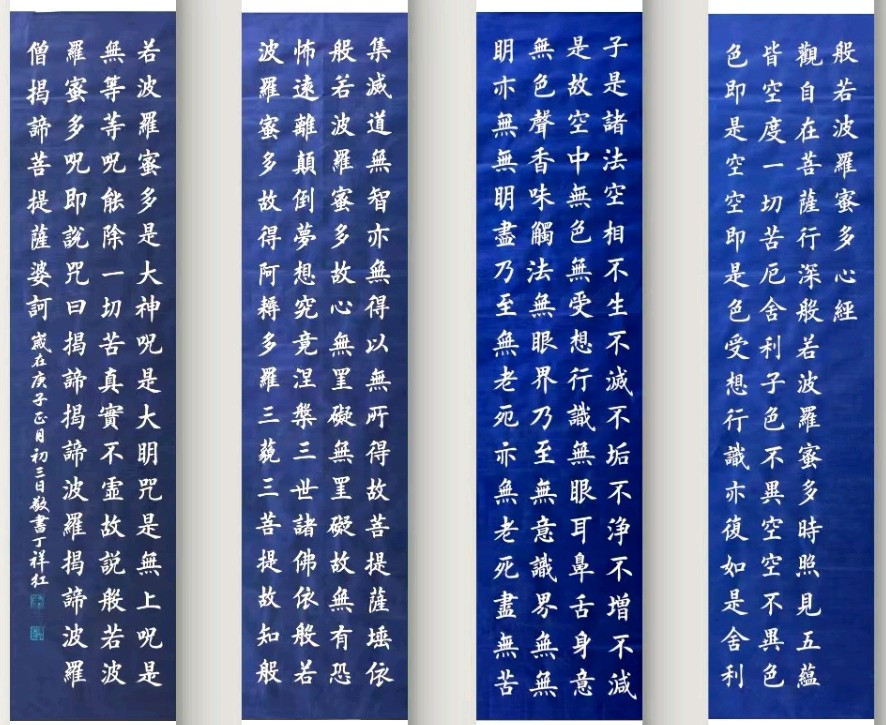 般若波羅蜜多心經
觀自在菩薩行深般若波羅蜜多時照見五蘊
皆空度一切苦厄舍利子色不異空空不異色
色即是空空即是色受想行識亦復如是舍利
子是諸法空相不生不滅不垢不淨不增不減
是故空中無色無受想行識無眼耳鼻舌身意
無色聲香味觸法無眼界乃至無意識界無無
明亦無無明盡乃至無老死亦無老死盡無苦
集滅道無智亦無得以無所得故菩提薩埵依
般若波羅蜜多故心無罣礙無罣礙故無有恐
怖遠離顛倒夢想究竟涅槃三世諸佛依般若
波羅蜜多故得阿耨多羅三藐三菩提故知般
若波羅蜜多是大神呪是大明咒是無上呪是
無等等呪能除一切苦真實不虛故説般若波
羅蜜多呪即說咒曰揭諦揭諦波羅揭諦波羅
僧揭諦菩提薩婆訶 歲在庚子正月初三日敬書丁祥红